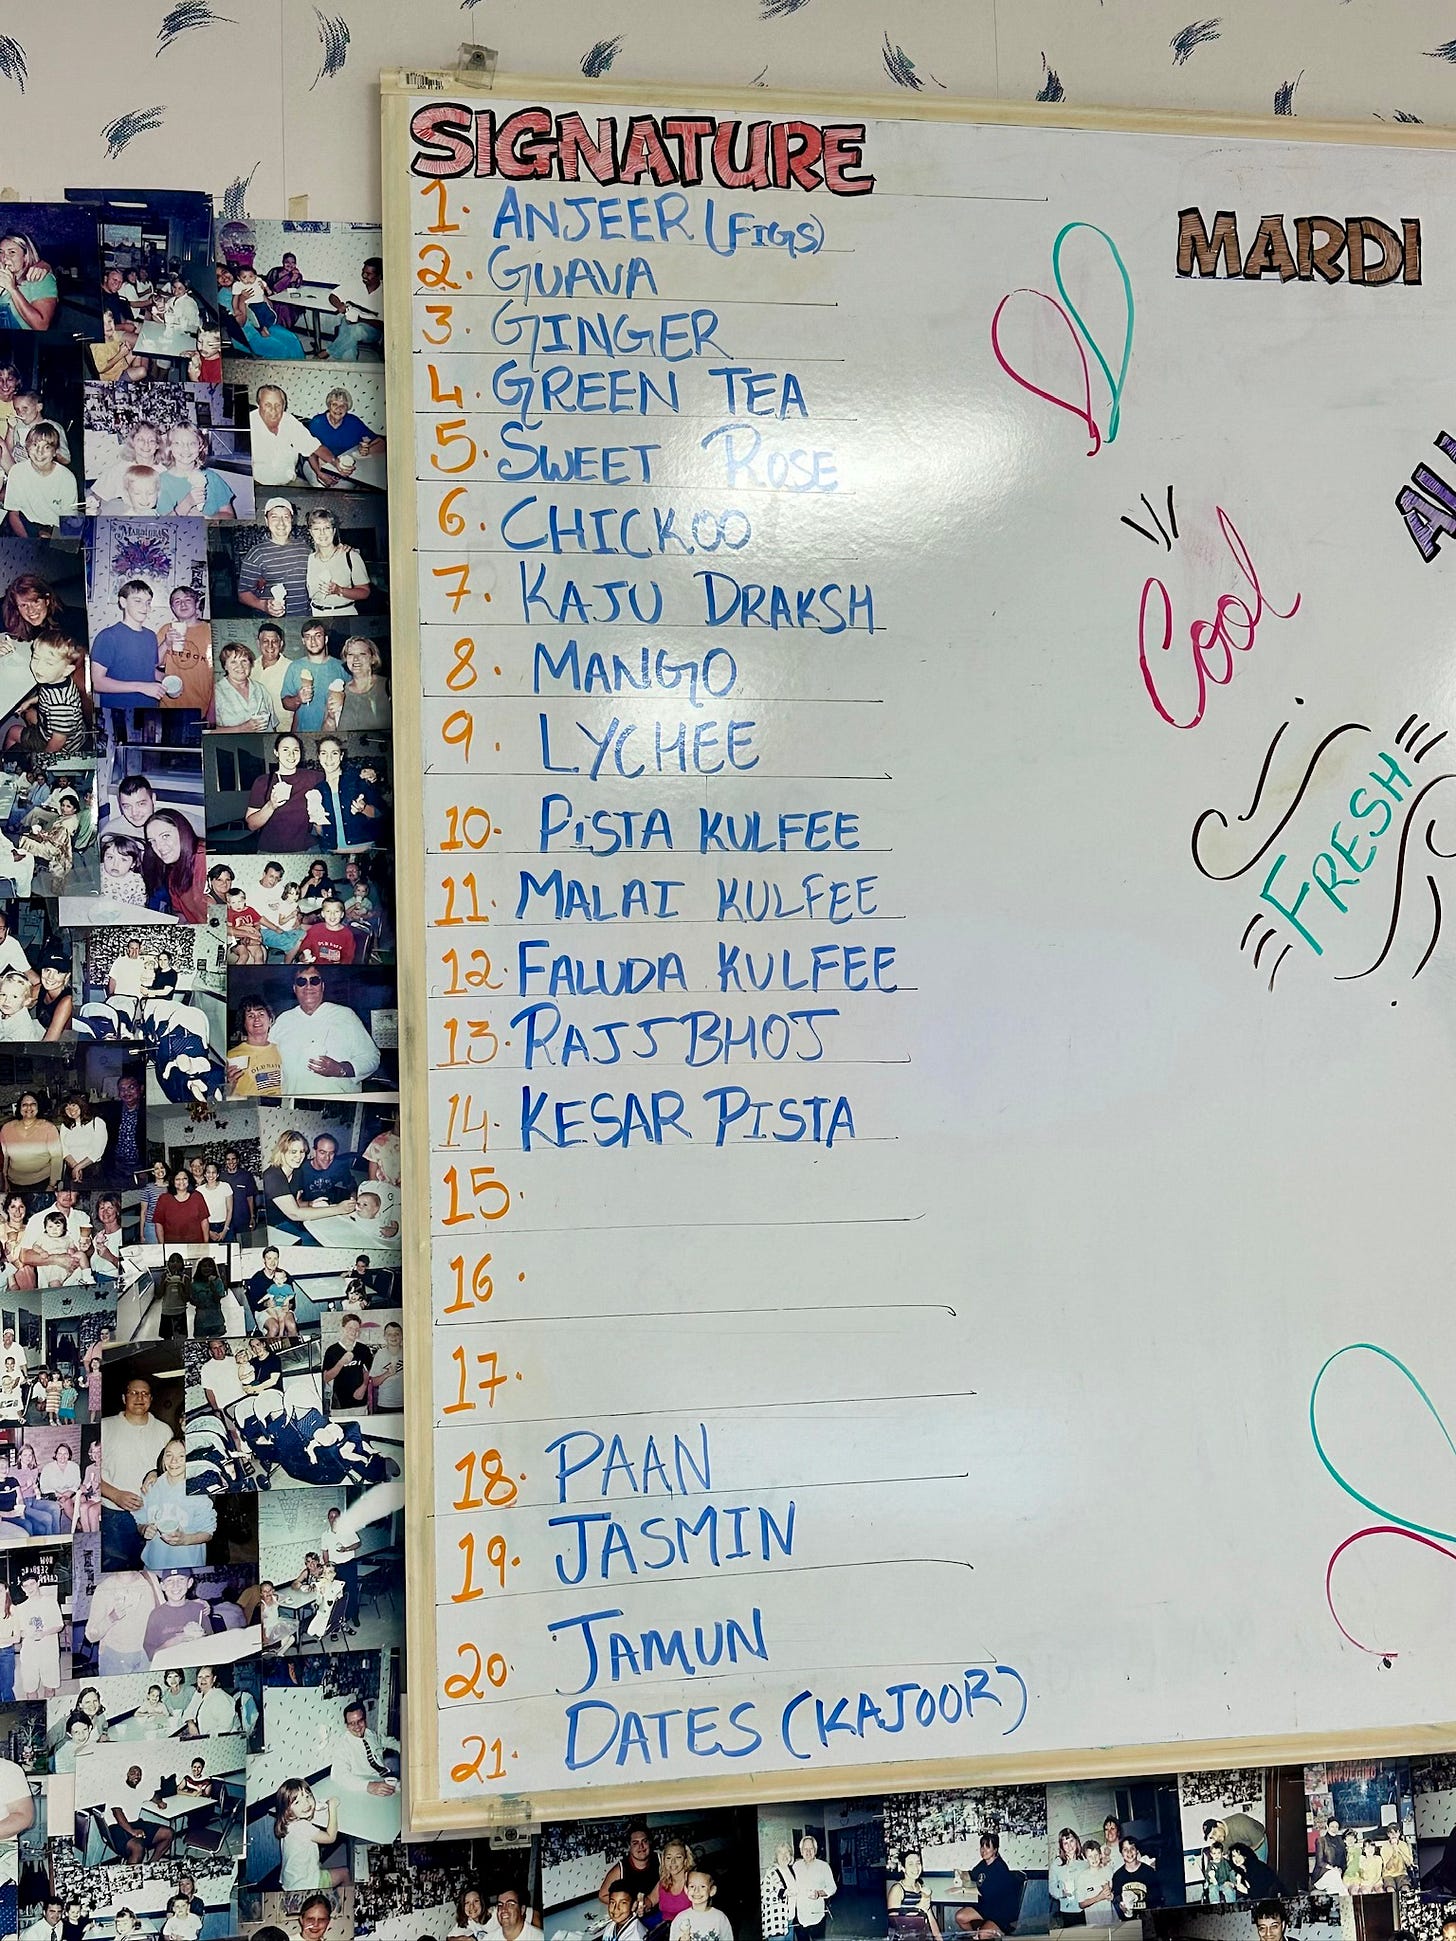 SIGNATURE
1. ANJEER (FIGS)
2. GUAVA
3. GINGER
4. GREEN TEA
5. SWEET ROSE
6. CHICKOO
7. KAJU DRAKSH
8. MANGO
9. LYCHEE
10. PISTA KULFEE
11. MALAI KULFEE
12. FALUDA KULFEE
13. RAJJBHOJ
14. KESAR PISTA
15.
16.
17.
18. PAAN
19. JASMIN
20. JAMUN
21. DATES (KAJOOR)
MARDI
Cool
FRESH